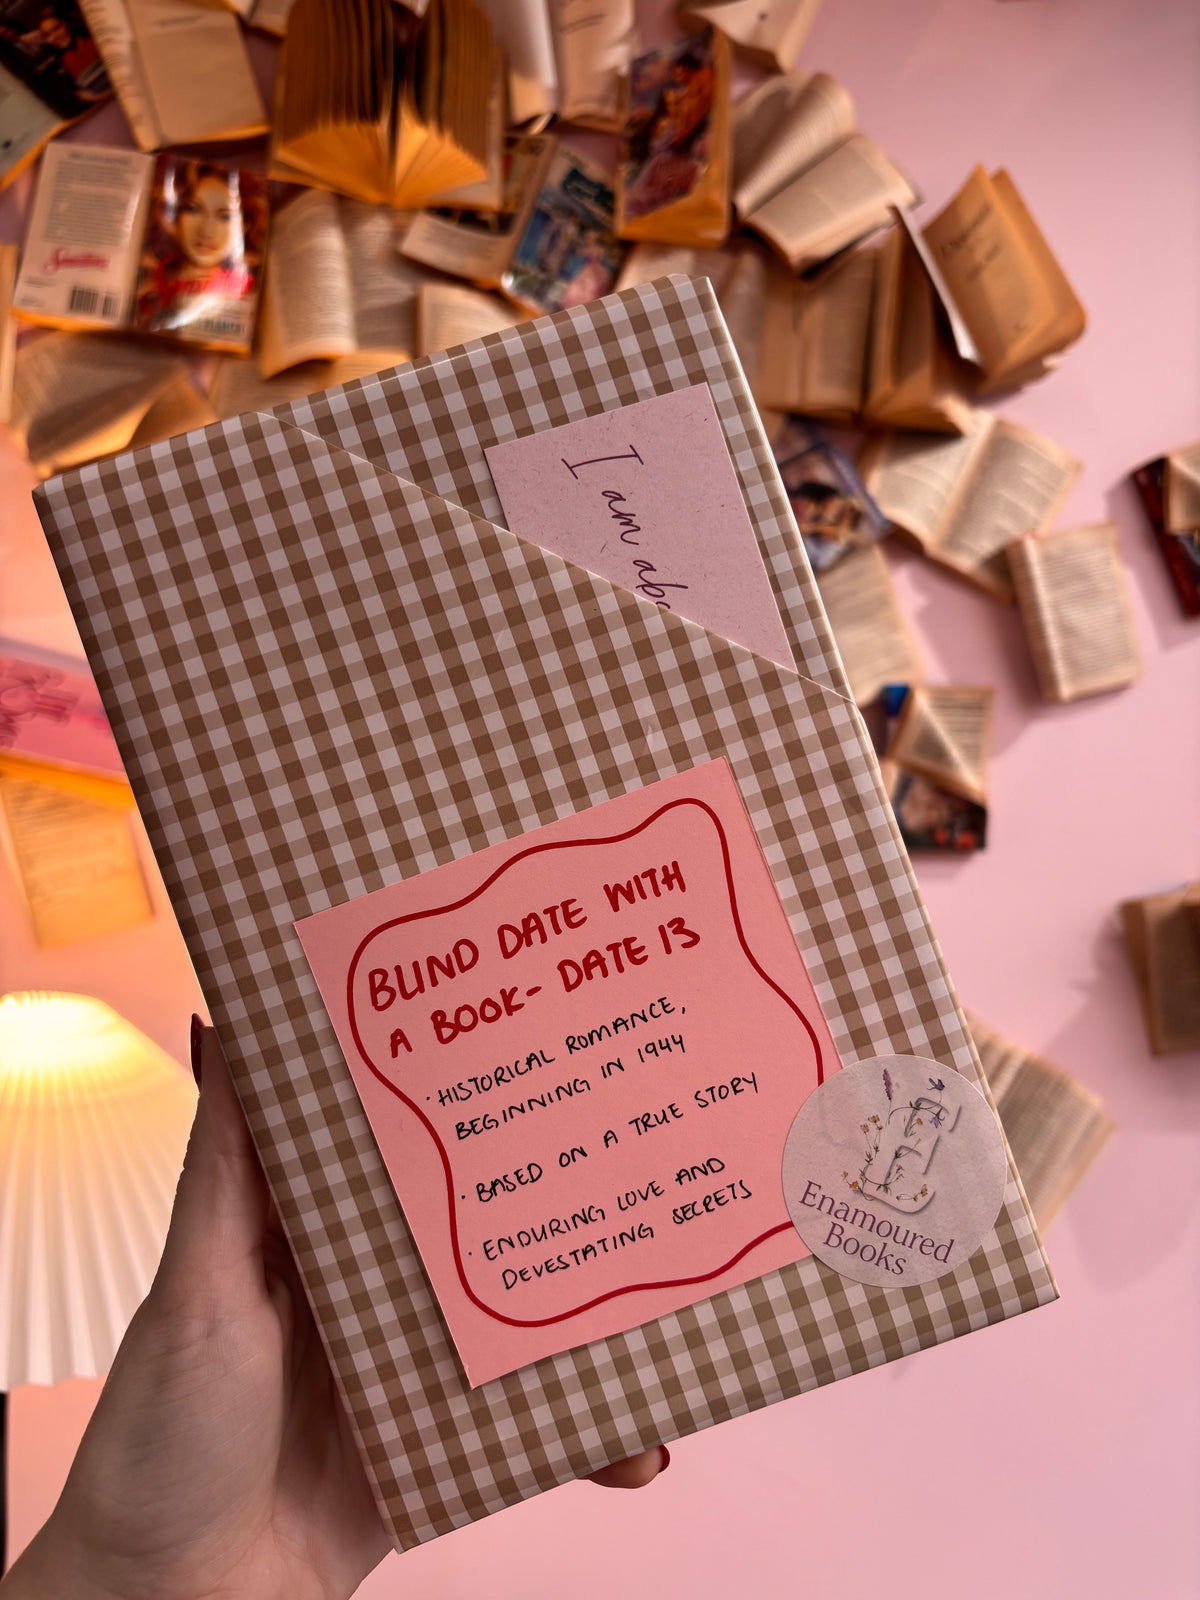 I am abs
BLIND DATE WITH
A BOOK- DATE 13
· HISTORICAL ROMANCE,
BEGINNING IN 1944
· BASED ON A TRUE STORY
· ENDURING LOVE AND
DEVESTATING SECRETS
E
Enamoured
Books